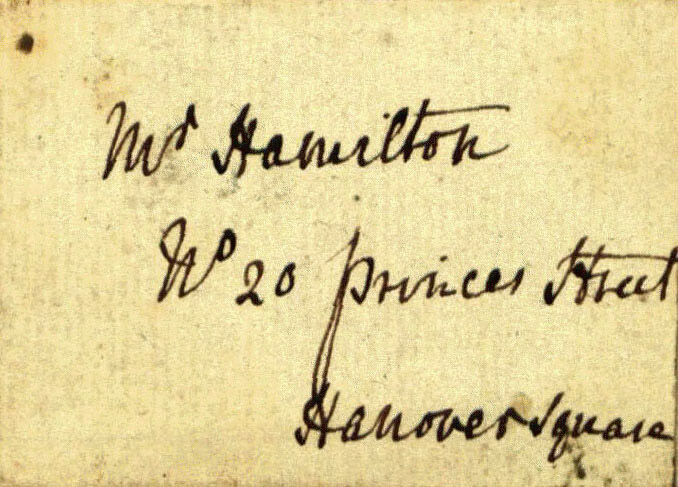 Mr Hamilton
No 20 Princes Street
Hanover Square